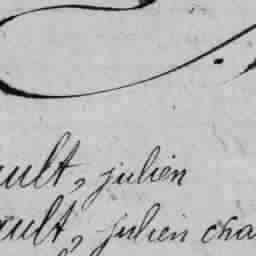 ault, julien
ault, julien cha